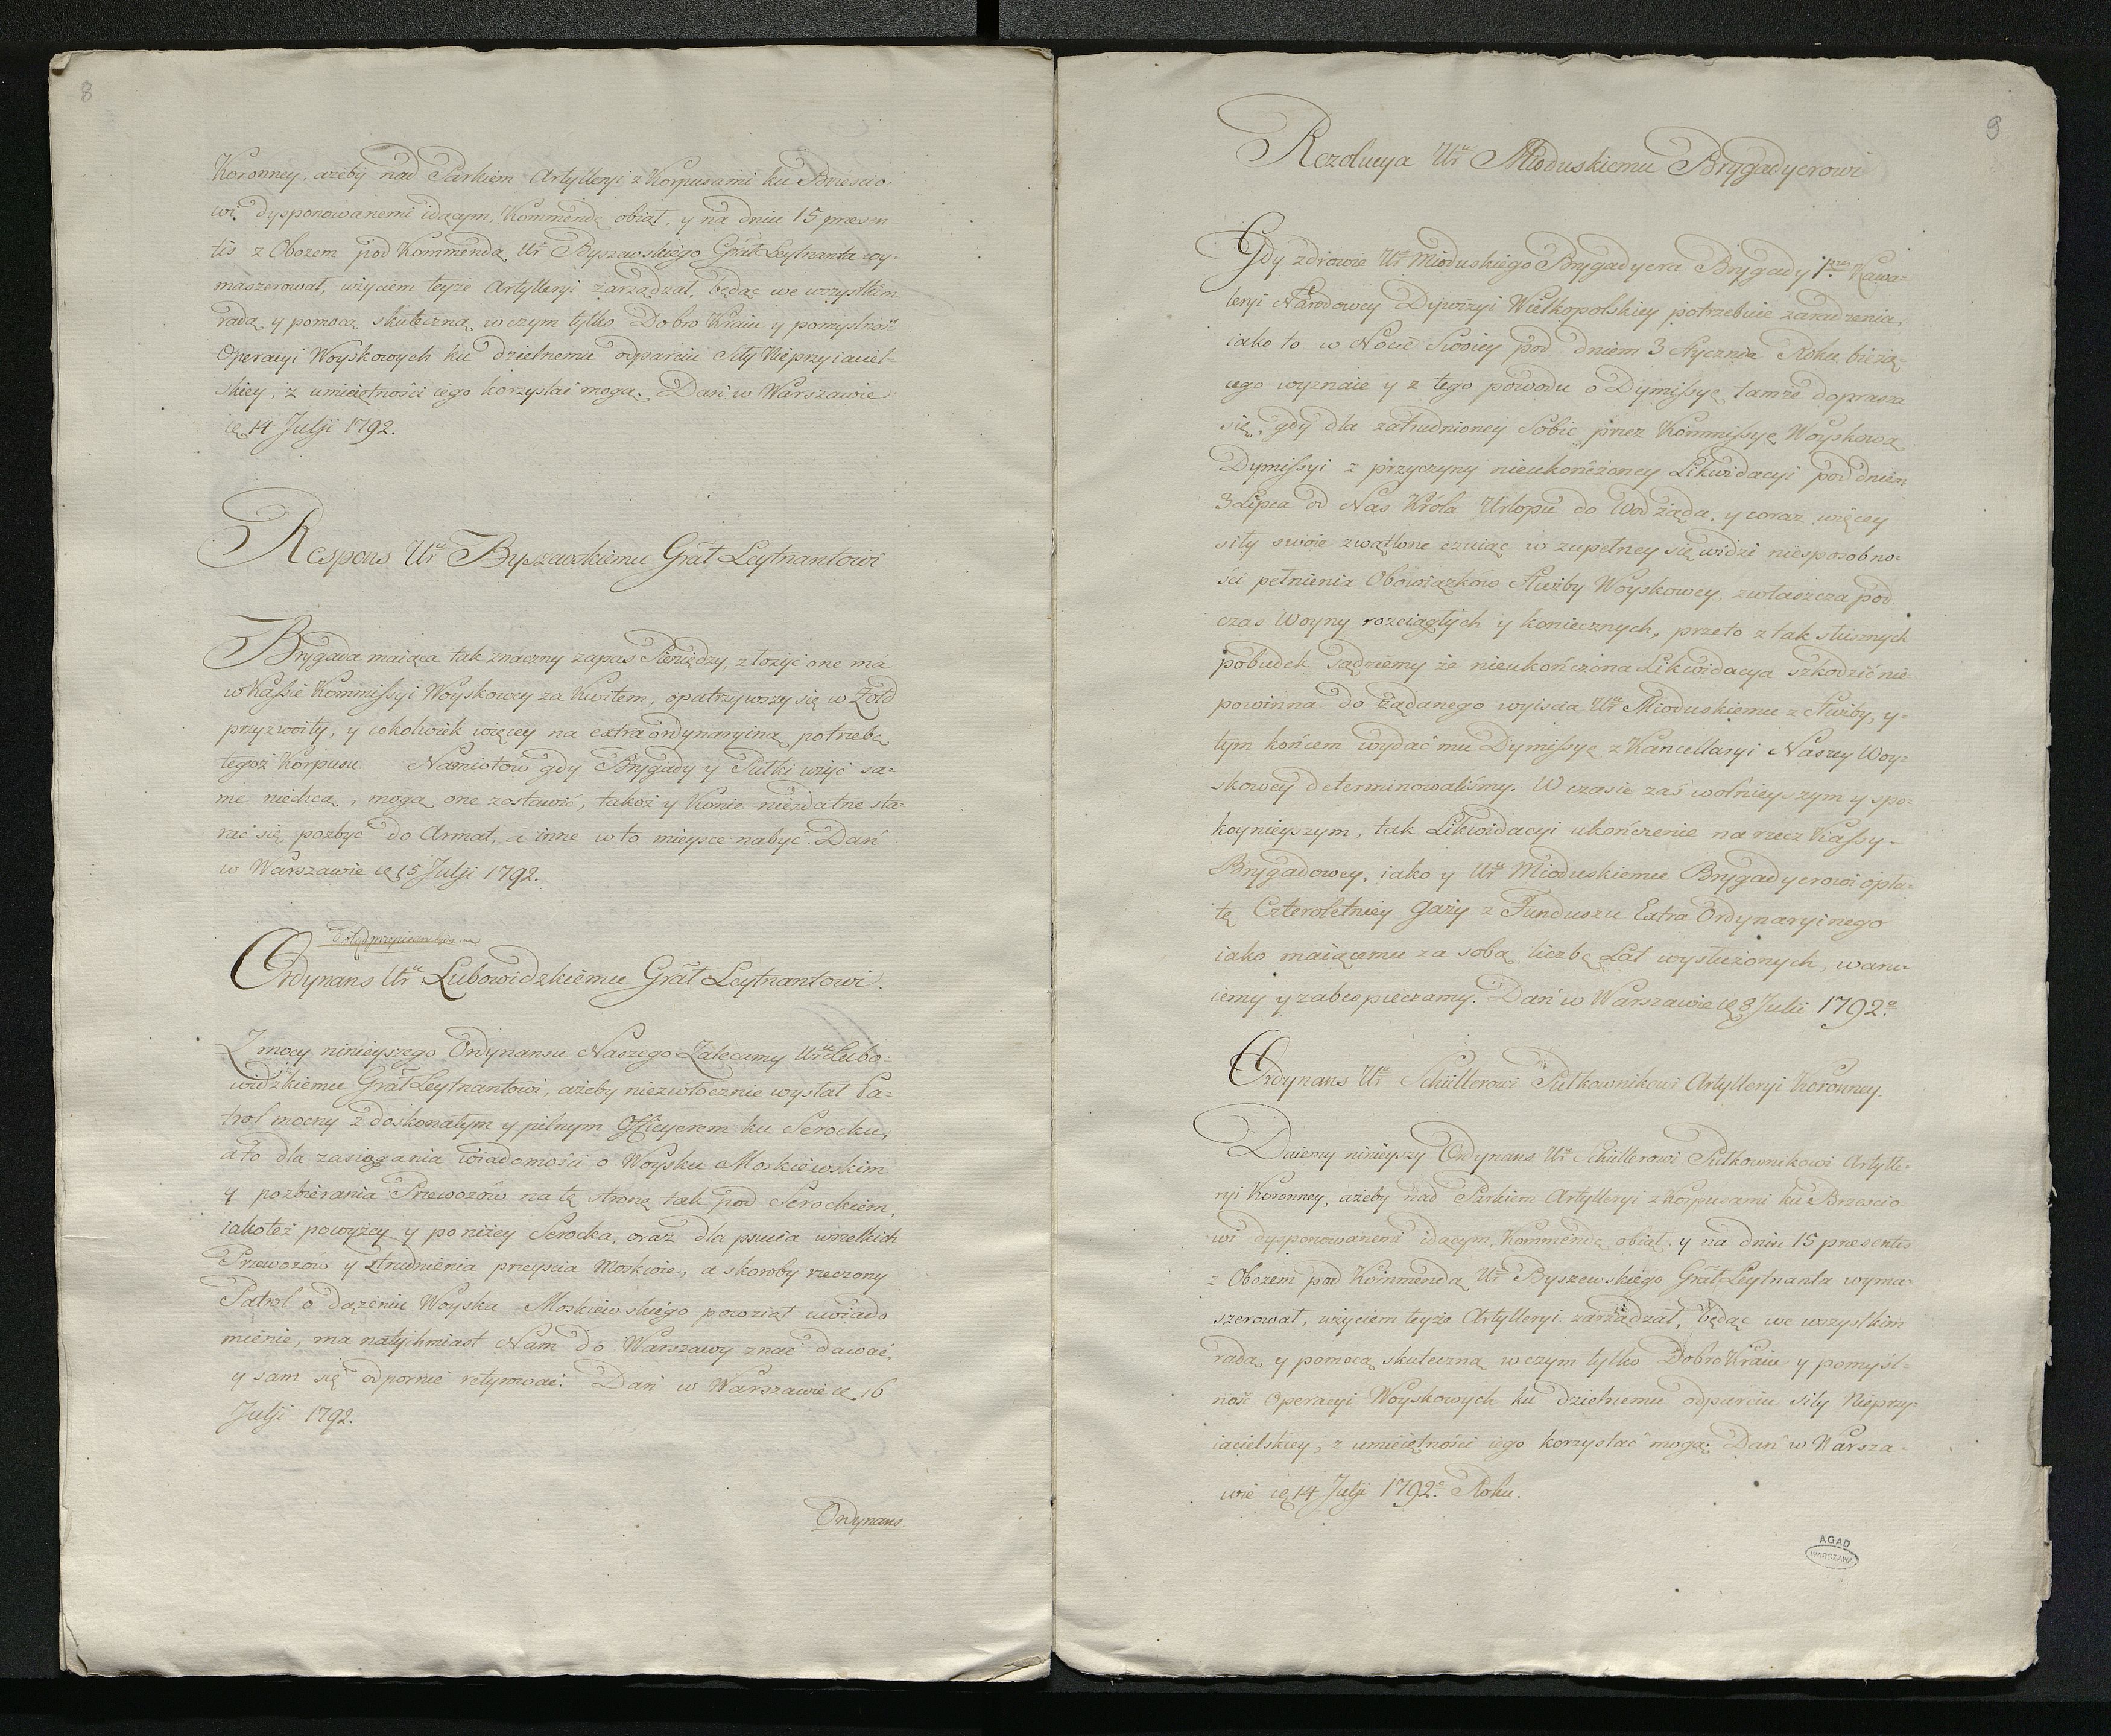 8
Koronney, ażeby nad Parkiem Artylleryi z Korpusami ku Brzescio-
wi dysponowanemi idącym, Kommendę obiął, y na dniu 15 præsen
tis z Obozem pod Kommendą Ur Byszewskiego Grał Leytnanta wy-
maszerował, użyciem teyże Artylleryi zarządzał, będąc we wszystkim
radą y pomocą skuteczną w czym tylko Dobro Kraiu y pomyślność
Operacyi Woyskowych ku dzielnemu odparciu Siły Nieprzyiaciel-
skiey, z umieiętności iego korzystać mogą. Dań w Warszawie
ię 14 Julji 1792.
Respons Urᵘ Byszewskiemu Grał Leytnantowi
Brygada maiąca tak znaczny zapas Pieniędzy, złożyć one ma
w Kassie Kommissyi Woyskowey za Kwitem, opatrzywszy się w Żołd
przyzwoity, y cokolwiek więcey na extraordynaryiną potrzebę
tegoż Korpusu. Namiotow gdy Brygady y Pułki użyć sa-
me niechcą, mogą one zostawić, takoż y Konie niezdatne sta-
rać się pozbyć do Armat, a inne w to mieysce nabyć. Dań
w Warszawie ię 15 Julji 1792.
Ordynans Urᵘ Lubowidzkiemu Grał Leytnantowi.
Z mocy ninieyszego Ordynansu Naszego Zalecamy Urᵘ Lubo-
widzkiemu Grał Leytnantowi, ażeby niezwłocznie wysłał Pa-
trol mocny z doskonałym y pilnym Officyerem ku Serocku,
a to dla zasięgania wiadomości o Woysku Moskiewskim
y pozbierania Przewozów na tę stronę tak pod Serockiem,
iakoteż powyżey y poniżey Serocka, oraz dla psucia wszelkich
Przewozów y utrudnienia przeyscia Moskwie, a skoroby rzeczony
Patrol o dążeniu Woyska Moskiewskiego powziął uwiado
mienie, ma natychmiast Nam do Warszawy znać dawać,
y sam się odpornie retyrować. Dań w Warszawie ię 16
Julji 1792.
Ordynans.
9
Rezolucya Urᵘ Mioduskiemu Brygadyerowi
Gdy zdrowie Urᵒ Mioduskiego Brygadyera Brygady 1. Kawa-
leryi Narodowey Dywizyi Wielkopolskiey potrzebuie zaradzenia,
iako to w Nocie Swoiey pod dniem 3 Stycznia Roku bieżą-
cego wyznaie y z tego powodu o Dymissyę tamże doprasza
się, gdy dla zatrudnioney Sobie przez Kommissyę Woyskową
Dymissyi z przyczyny nieukończoney Likwidacyi pod dniem
3 Lipca od Nas Króla Urlopu do Wod żąda, y coraz więcey
siły swoie zwątlone czuiąc w zupełney się widzi niesposobno-
ści pełnienia Obowiązków Służby Woyskowey, zwłaszcza pod
czas Woyny rozciągłych y koniecznych, przeto z tak słusznych
pobudek sądziemy że nieukończona Likwidacya szkodzić nie
powinna do żądanego wyiscia Urᵘ Mioduskiemu z Służby, y-
tym końcem wydać mu Dymissyę z Kancellaryi Naszey Woy-
skowey determinowaliśmy. W czasie zaś wolnieyszym y spo-
koynieyszym, tak Likwidacyi ukończenie na rzecz Kassy-
Brygadowey, iako y Urᵘ Mioduskiemu Brygadyerowi opła-
tę Czteroletniey gaży z Funduszu Extra Ordynaryinego
iako maiącemu za sobą liczbę Lat wysłużonych, waru-
iemy y zabespieczamy. Dań w Warszawie ię 8 Julii 1792.
Ordynans Urᵘ Schüllerowi Pułkownikowi Artylleryi Koronney.
Daiemy ninieyszy Ordynans Urᵘ Schüllerowi Pułkownikowi Artylle-
ryi Koronney, ażeby nad Parkiem Artylleryi z Korpusami ku Brzescio-
wi dysponowanemi idącym, Kommendę obiął, y na dniu 15 præsentis
z Obozem pod Kommendą Urᵒ Byszewskiego Grał Leytnanta wyma-
szerował, użyciem teyże Artylleryi zarządzał, będąc we wszystkim
radą y pomocą skuteczną w czym tylko Dobro Kraiu y pomyśl-
ność Operacyi Woyskowych ku dzielnemu odparciu siły Nieprzy-
iacielskiey, z umieiętności iego korzystać mogą. Dań w Warsza-
wie ię 14 Julji 1792. Roku.
AGAD
WARSZAWA